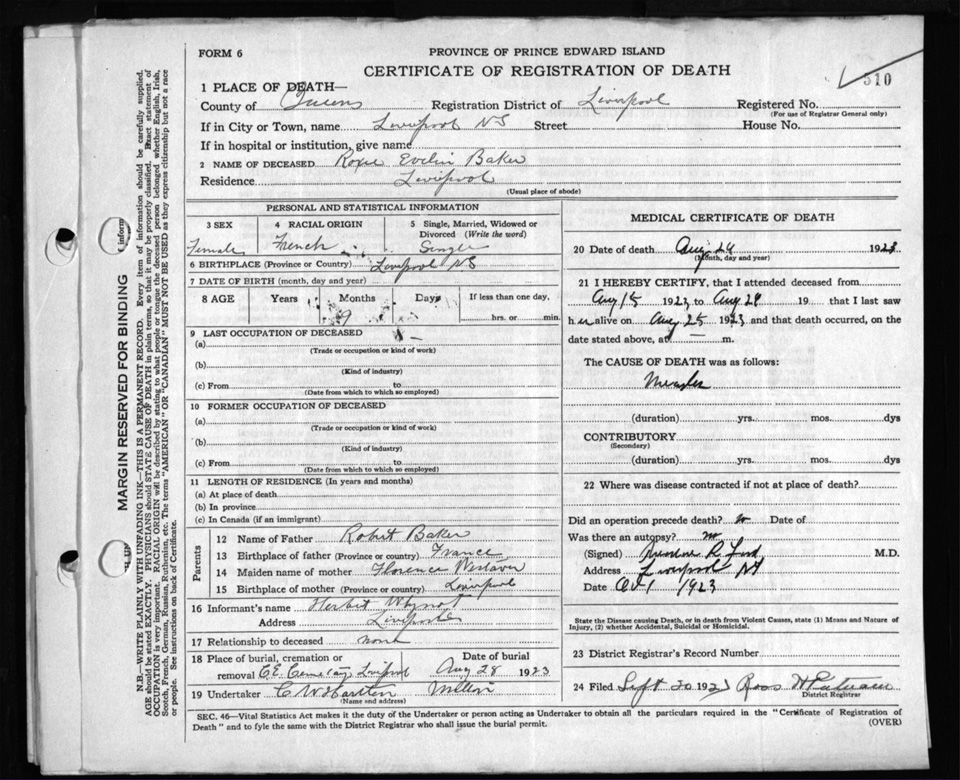 FORM 6
PROVINCE OF PRINCE EDWARD ISLAND
CERTIFICATE OF REGISTRATION OF DEATH
510
1 PLACE OF DEATH—
County of Queens Registration District of Liverpool Registered No.
(For use of Registrar General only)
If in City or Town, name Liverpool NS Street House No.
If in hospital or institution, give name
2 NAME OF DECEASED Roxie Evelin Baker
Residence Liverpool
(Usual place of abode)
PERSONAL AND STATISTICAL INFORMATION
3 SEX 4 RACIAL ORIGIN 5 Single, Married, Widowed or
Divorced (Write the word)
Female French Single
6 BIRTHPLACE (Province or Country) Liverpool NS
7 DATE OF BIRTH (month, day and year)
8 AGE Years Months Days If less than one day,
9 hrs. or min.
9 LAST OCCUPATION OF DECEASED
(a)
(Trade or occupation or kind of work)
(b)
(Kind of industry)
(c) From to
(Date from which to which so employed)
10 FORMER OCCUPATION OF DECEASED
(a)
(Trade or occupation or kind of work)
(b)
(Kind of industry)
(c) From to
(Date from which to which so employed)
11 LENGTH OF RESIDENCE (In years and months)
(a) At place of death
(b) In province
(c) In Canada (if an immigrant)
Parents
12 Name of Father Robert Baker
13 Birthplace of father (Province or country) France
14 Maiden name of mother Florence Westaver
15 Birthplace of mother (Province or country) Liverpool
16 Informant's name Herbert Wynot
Address Liverpool
17 Relationship to deceased none
18 Place of burial, cremation or Date of burial
removal C.E. Cemetary Liverpool Aug 28 1923
19 Undertaker C W
(Name and address)
MEDICAL CERTIFICATE OF DEATH
20 Date of death Aug 1923
(Month, day and year)
21 I HEREBY CERTIFY, that I attended deceased from
Aug 15 1923 to Aug 19 that I last saw
h er alive on Aug 25 1923 and that death occurred, on the
date stated above, at m.
The CAUSE OF DEATH was as follows:
Measles
(duration) yrs. mos. dys
CONTRIBUTORY
(Secondary)
(duration) yrs. mos. dys
22 Where was disease contracted if not at place of death?
Did an operation precede death? no Date of
Was there an autopsy? no
(Signed) M.D.
Address Liverpool NS
Date Oct 1 1923
State the Disease causing Death, or in death from Violent Causes, state (1) Means and Nature of
Injury, (2) whether Accidental, Suicidal or Homicidal.
23 District Registrar's Record Number
24 Filed Sept 20 192
District Registrar
SEC. 46—Vital Statistics Act makes it the duty of the Undertaker or person acting as Undertaker to obtain all the particulars required in the "Certificate of Registration of
Death" and to fyle the same with the District Registrar who shall issue the burial permit.
(OVER)
MARGIN RESERVED FOR BINDING
N.B.—WRITE PLAINLY WITH UNFADING INK—THIS IS A PERMANENT RECORD. Every item of information should be carefully supplied.
AGE should be stated EXACTLY. PHYSICIANS should STATE CAUSE OF DEATH in plain terms, so that it may be properly classified. Exact statement of
OCCUPATION is very important. RACIAL ORIGIN will be described by stating to what people or tongue the deceased person belonged whether English, Irish,
Scotch, French, German, Russian, Ruthenian, etc. The terms "AMERICAN" OR "CANADIAN" MUST NOT BE USED as they express citizenship but not a race
or people. See instructions on back of Certificate.